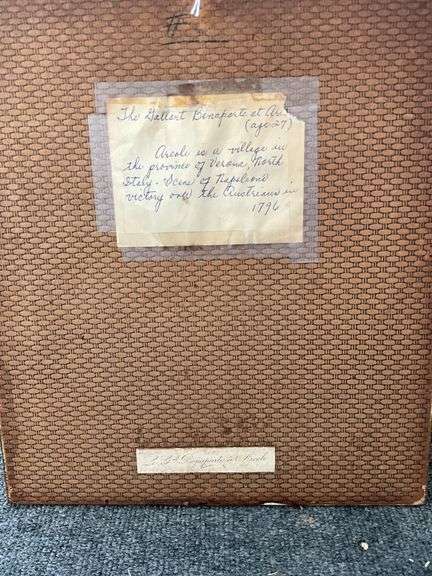 #
The Gallant Bonaparte at Ar
(age 27)
Arcole is a village in
the province of Verona, North
Italy - Scene of Napoleons
victory over the Austrians in
1796
Bonaparte